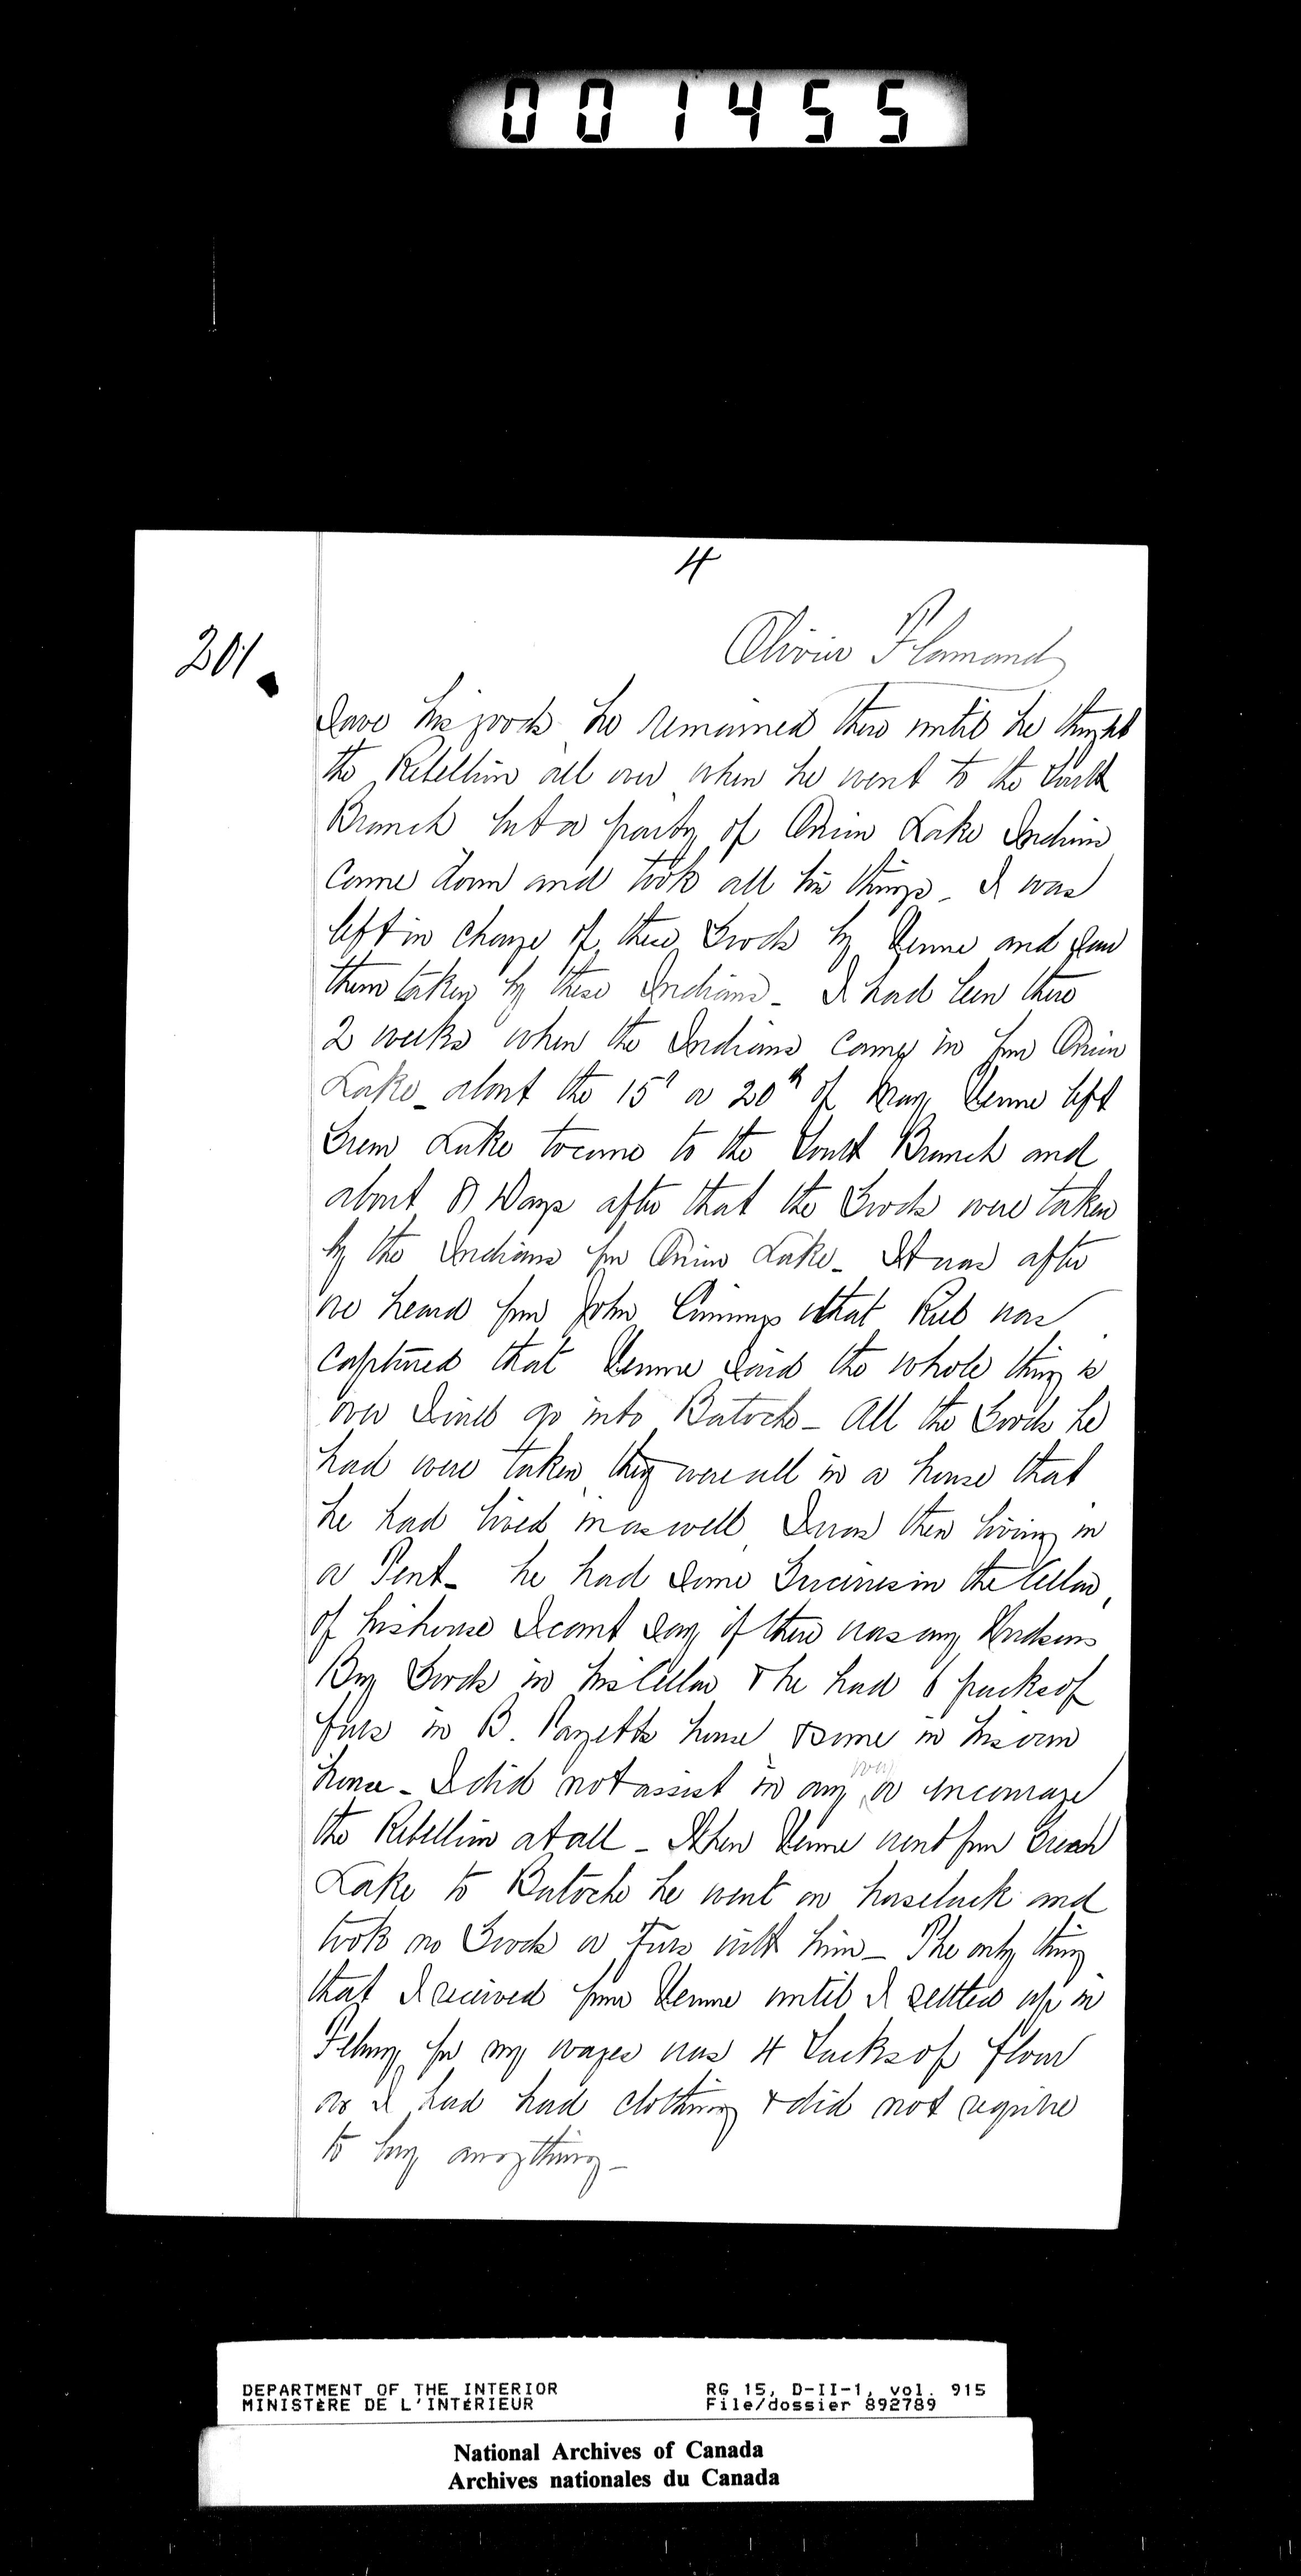 001455
4
201
Olivier Flamand
Save his goods he remained there until he thought
the Rebellion all over when he went to the South
Branch but a party of Onion Lake Indians
came down and took all his things - I was
left in charge of these Goods by Venne and saw
them taken by these Indians - I had been there
2 weeks when the Indians came in from Onion
Lake - about the 15th or 20th of May Venne left
Green Lake to come to the South Branch and
about 8 Days after that the Goods were taken
by the Indians from Onion Lake - It was after
we heard from John Cummings that Riel was
captured that Venne said the whole thing is
over I will go into Batoche - All the Goods he
had were taken, they were all in a house that
he had lived in as well I was then living in
a Tent - he had some Groceries in the Cellar,
of his house I cant say if there was any Hudsons
Bay Goods in his Cellar & he had 6 packs of
furs in B. Payette house & some in his own
house - I did not assist in any way or encourage
the Rebellion at all - When Venne went from Green
Lake to Batoche he went on horseback and
took no Goods or Furs with him - The only thing
that I received from Venne until I settled up in
Feby for my wages was 4 Sacks of flour
as I had had clothing & did not require
to buy anything -
DEPARTMENT OF THE INTERIOR
MINISTÈRE DE L'INTÉRIEUR
RG 15, D-II-1, vol. 915
File/dossier 892789
National Archives of Canada
Archives nationales du Canada